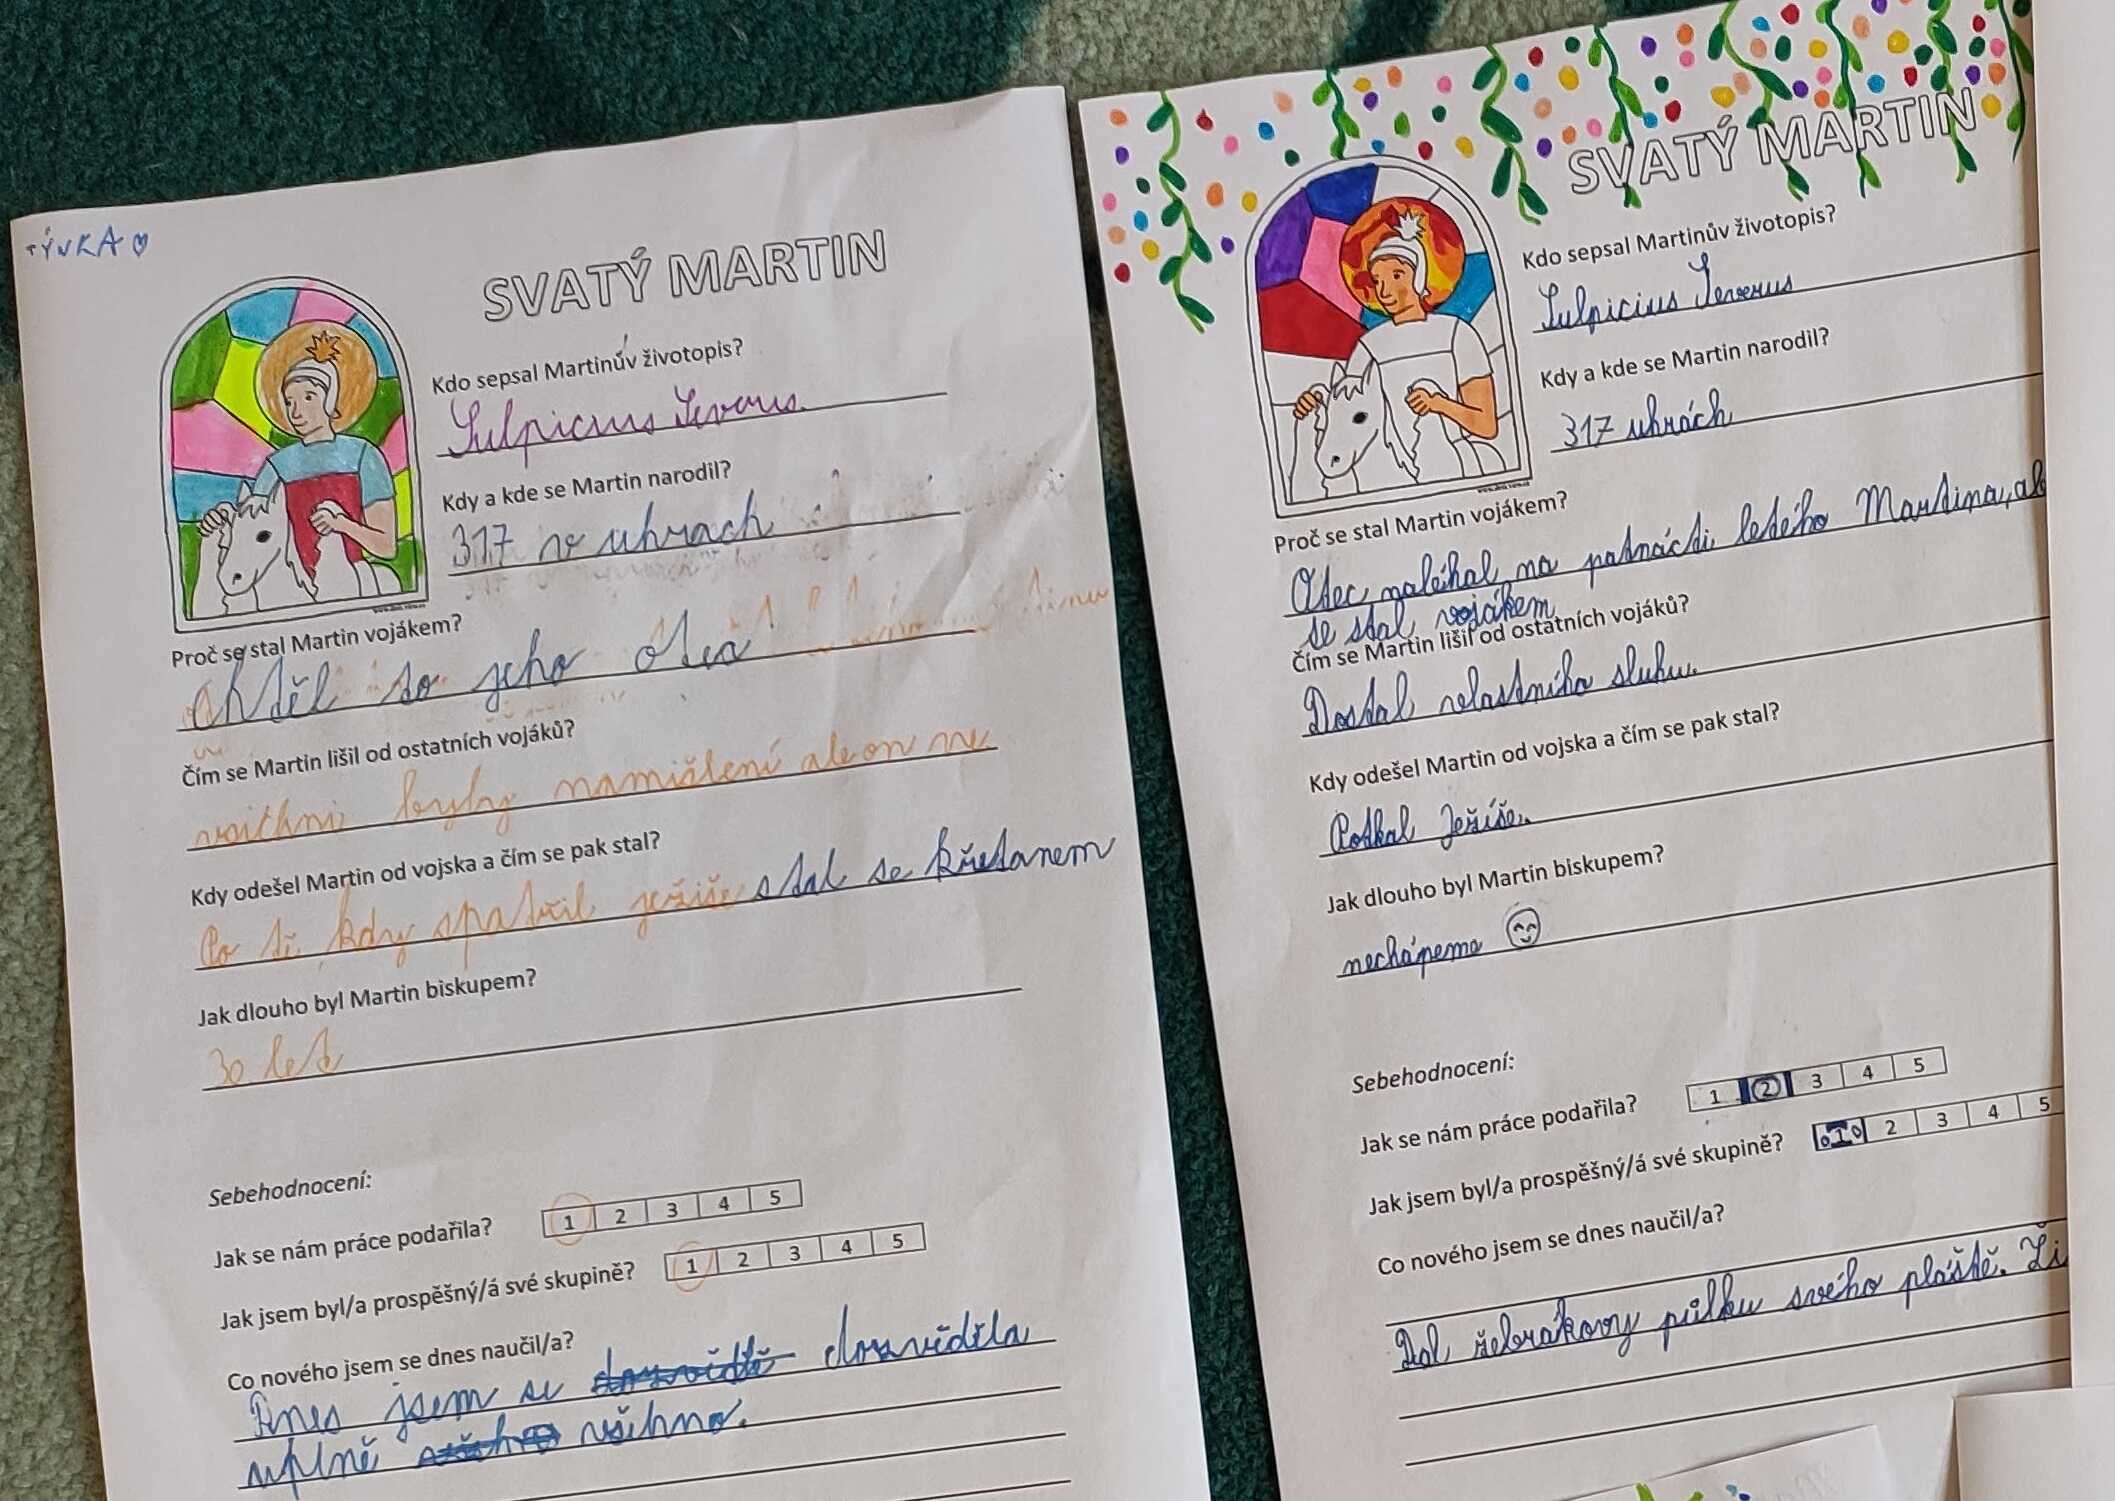 TÝNKA
SVATÝ MARTIN
Kdo sepsal Martinův životopis?
Sulpicius Severus.
Kdy a kde se Martin narodil?
317 v uhrach
Proč se stal Martin vojákem?
chtěl to jeho otec
Čím se Martin lišil od ostatních vojáků?
vsichni byly namišlení ale on ne
Kdy odešel Martin od vojska a čím se pak stal?
Po té, kdy spatřil ježiše stal se křestanem
Jak dlouho byl Martin biskupem?
30 let
Sebehodnocení:
Jak se nám práce podařila? 1 2 3 4 5
Jak jsem byl/a prospěšný/á své skupině? 1 2 3 4 5
Co nového jsem se dnes naučil/a?
Dnes jsem se dozvěděla
uplně všichno.
SVATÝ MARTIN
Kdo sepsal Martinův životopis?
Sulpicius Severus
Kdy a kde se Martin narodil?
317 uhrách
Proč se stal Martin vojákem?
Otec naléhal na patnácti letého Martina, al
se stal vojákem
Čím se Martin lišil od ostatních vojáků?
Dostal vlastního sluhu.
Kdy odešel Martin od vojska a čím se pak stal?
Potkal Ježíše.
Jak dlouho byl Martin biskupem?
nechápeme
Sebehodnocení:
Jak se nám práce podařila? 1 2 3 4 5
Jak jsem byl/a prospěšný/á své skupině? 1 2 3 4 5
Co nového jsem se dnes naučil/a?
Dal žebrákovy půlku svého pláště. Ži